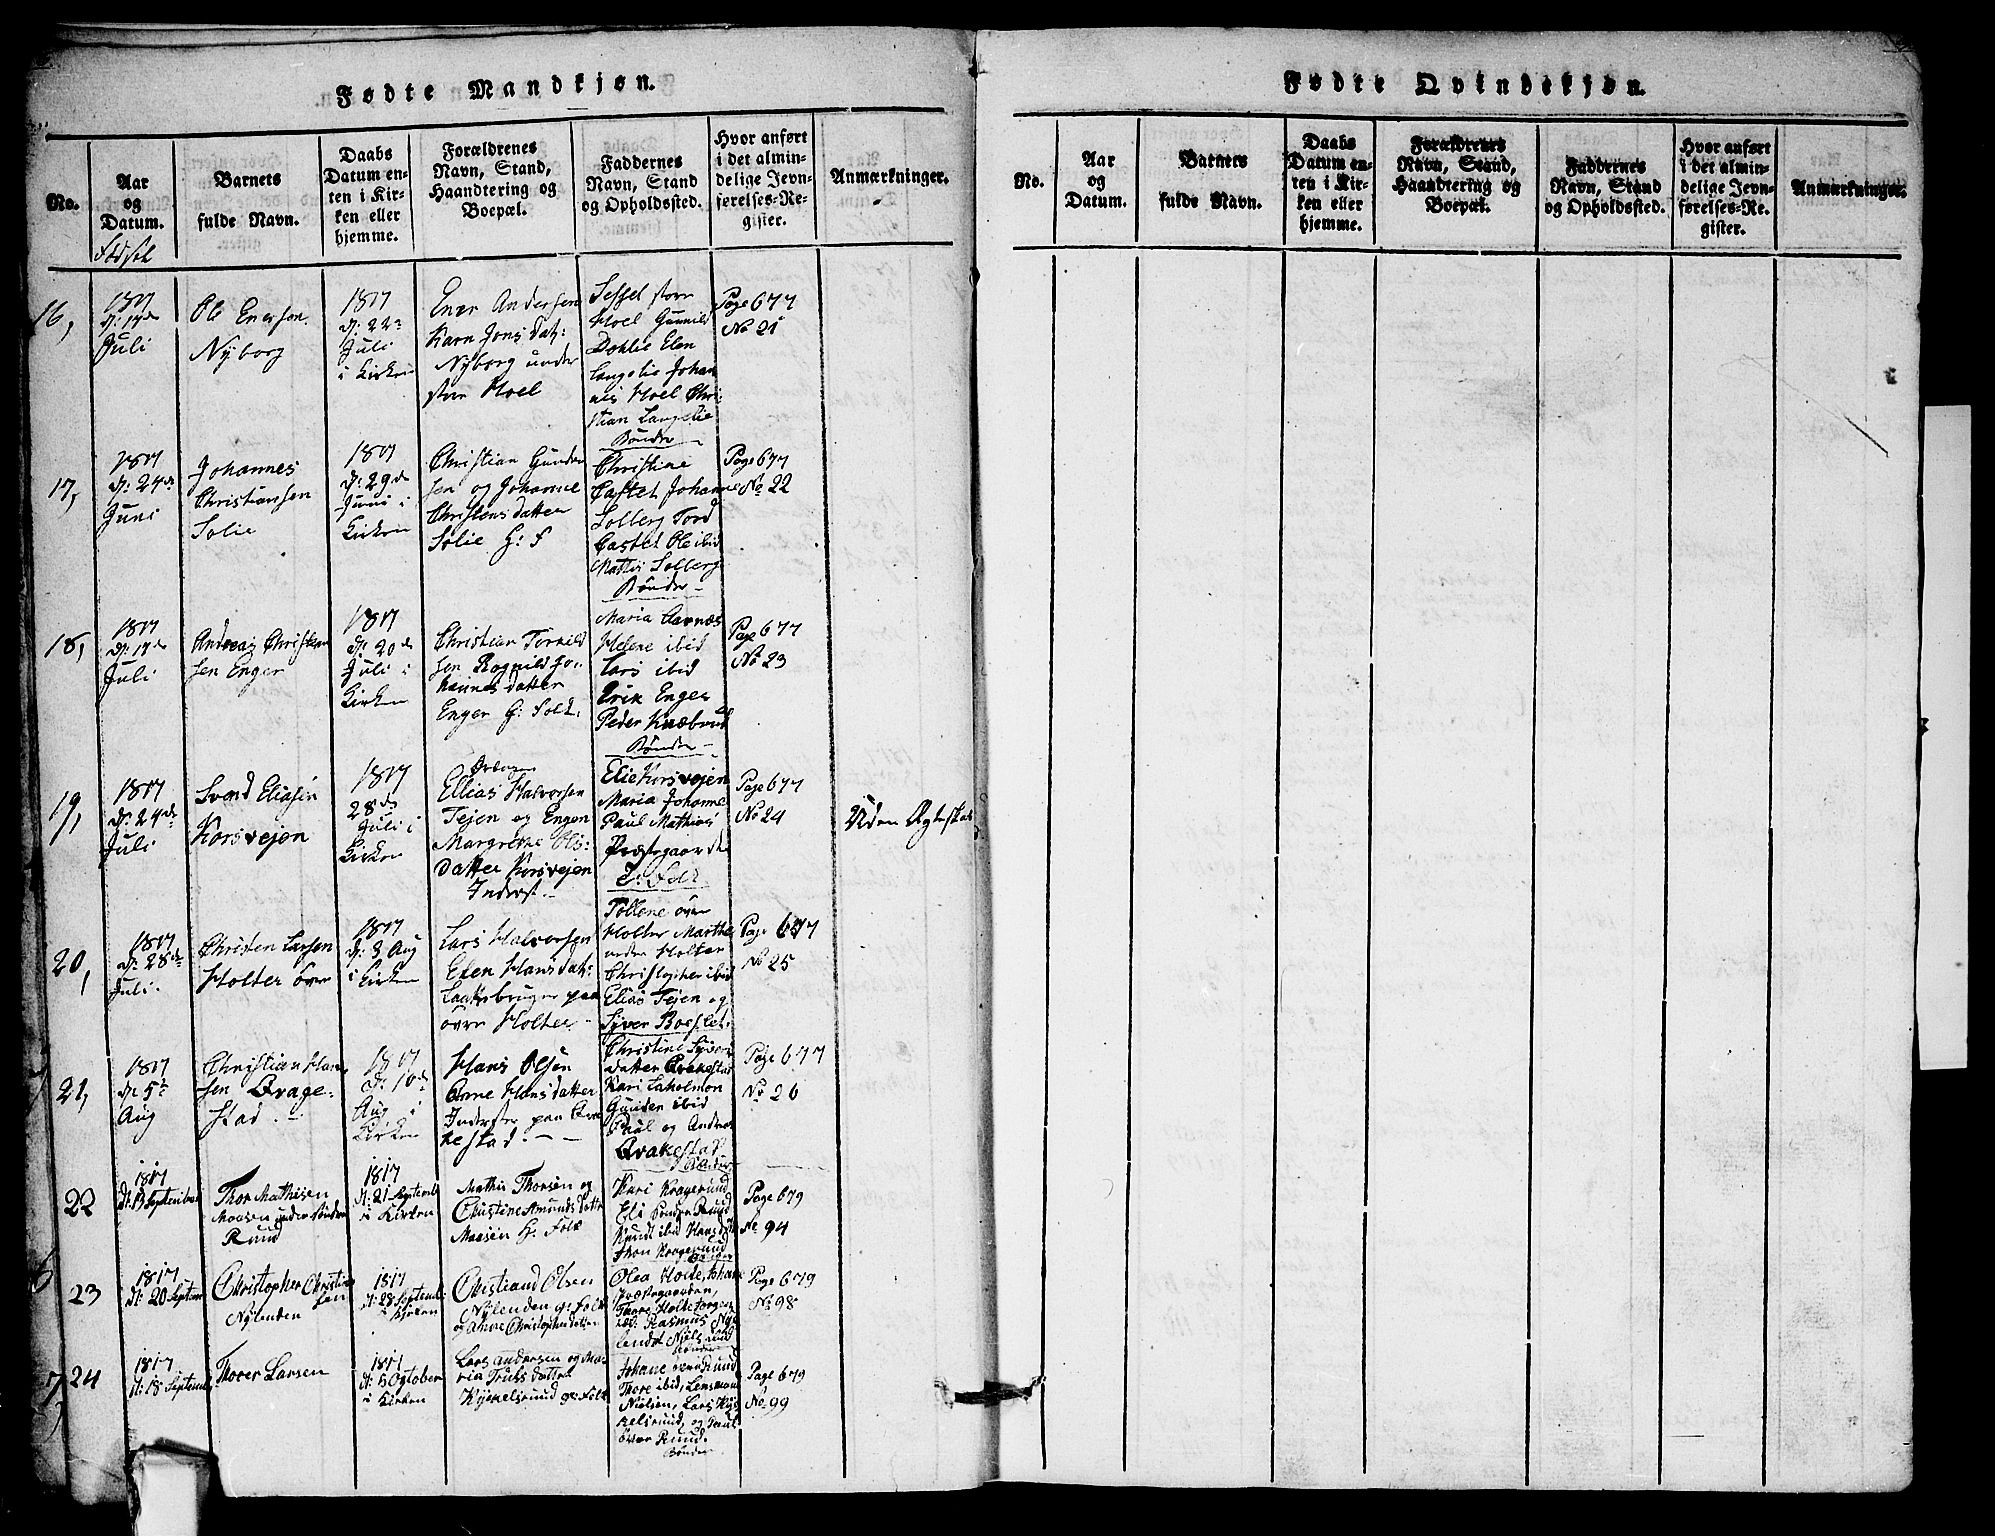 Fødte Mandkjøn.
No.
Aar
og
Datum.
Fødsel
Barnets
fulde Navn.
Daabs
Datum en-
ten i Kir-
ken eller
hjemme.
Forældrenes
Navn, Stand,
Haandtering og
Boepæl.
Faddernes
Navn, Stand
og Opholdssted.
Hvor anført
i det almin-
delige Jevn-
førelses-Re-
gister.
Anmærkninger.
16,
1817
d: 17de
Juli
Ole Enersen
Nyborg
1817
d: 22de
Juli
i Kirken
Ener Andersen
Karn Jonsdat:
Nyborg under
store Hoel
Sessel store
Hoel Gunild
Dohlie Elen
Langelie Johan
nis Hoel Chri
stian Langelie
Bønder
Page 677
No 21
17,
1817
d: 24de
Juni
Johannes
Christiansen
Solie
1817
d: 29de
Juni i
Kirken
Christian Gunder
sen og Johanne
Christensdatter
Solie G: F
Christine
Castet Johanne
Solberg Tord
Castet Ole ibid
Mathis Solberg
Bønder
Page 677
No 22
18,
1817
d: 17de
Juli
Andreas Christian
sen Enger
1817
d: 20de
Juli i
Kirken
Christian Torkild
sen Rognild Jo-
hannesdatter
Enger G: Folk.
Maria Aarnæs
Helene ibid
Lars ibid
Erik Enger
Peder Knæbrud
Bønder
Page 677
No 23
19,
1817
d: 24de
Juli
Svend Eliasen
Korsvejen
1817
28de
Juli i
Kirken
Ellias Halvorsen
Tejen og Engen
Margrethe Ols-
datter Korsvejen
Inderst
Elie Korsvejen
Maria Johanne
Paul Mathias
Præstegaarden
Page 677
No 24
Uden Ægteskab
20,
1817
d: 28de
Juli.
Christen Larsen
Holter övre
1817
d: 3 Aug
i Kirken
Lars Halvorsen
Elen Hansdat:
Laatebruger paa
övre Holter
Tollene övre
Holter Marthe
nedre Holter
Christopher ibid
Elias Tejen og
Syver Boeslet.
Page 677
No 25
21,
1817
d: 5te
Aug
Christian Han
sen Qvage-
stad.
1817
d: 10de
Aug i
Kirken
Hans Olsen
Anne Hansdatter
Inderster paa Qva
kestad.
Christine Syvers
datter Qvakestad
Kari Laholmon
Gunden ibid
Paul og Andreas
Qvakestad
Bønder
Page 677
No 26
22
1817
d: 13 September
Thor Mathisen
Moesen under søndre
Ruud
1817
d: 21 Septemb
i Kirken
Mathis Thorsen og
Christine Amunds datter
Moesen G: Folk
Kari Kragerund
Eli sønder Ruud
Knudt ibid Hans ibid
Thon Kragerund
Bønder
Page 679
No 94
23
1817
d: 20 Septem
Christopher Christian
sen
Nylenden
1817
d: 28 Septemb:
i Kirken
Christiand Olsen
Nylenden g: Folk
og Anne Christophersdatter
Olea Holde, Johane
Præstegaarden,
Thore Holte Jorgen
ibd: Rasmus Ny-
lendet Niels Ruud
Bønder
Page 679
No 98
24
1817
d: 18 Septemb
Thorer Larsen
1817
d: 5 October
i Kirken
Lars Andersen og Ma-
ria Truls datter
Kyckelsruud g: Folk
Johane övre Ruud
Thore ibid, Lensmand
Nielsen, Lars Kys
kelsruud, og Paul
över Ruud.
Bønder
Page 679
No 99
Fødte Qvindekjøn.
No.
Aar
og
Datum.
Barnets
fulde Navn.
Daabs
Datum en-
ten i Kir-
ken eller
hjemme.
Forældrenes
Navn, Stand,
Haandtering og
Boepæl.
Faddernes
Navn, Stand
og Opholdssted.
Hvor anført
i det almin-
delige Jevn-
førelses-Re-
gister.
Anmærkninger.